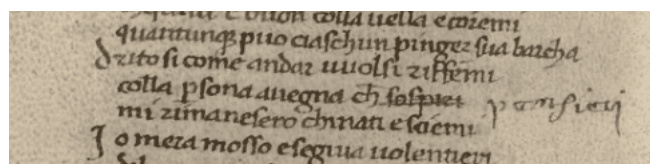 quanti e buon colla uella e coremi
quantunq puo ciaschun pinger sua barcha
drito si come andar uuolsi riffemi
colla psona auegna ch sospiri pensieri
mi rimanesero chinati e sciemi
Io mera mosso e seguia uolentieri